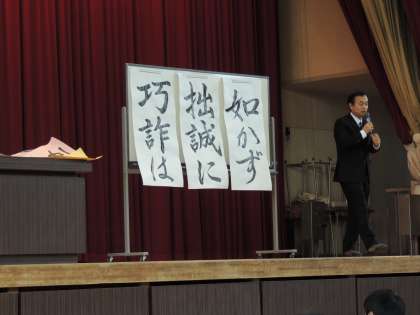 巧詐は
拙誠に
如かず